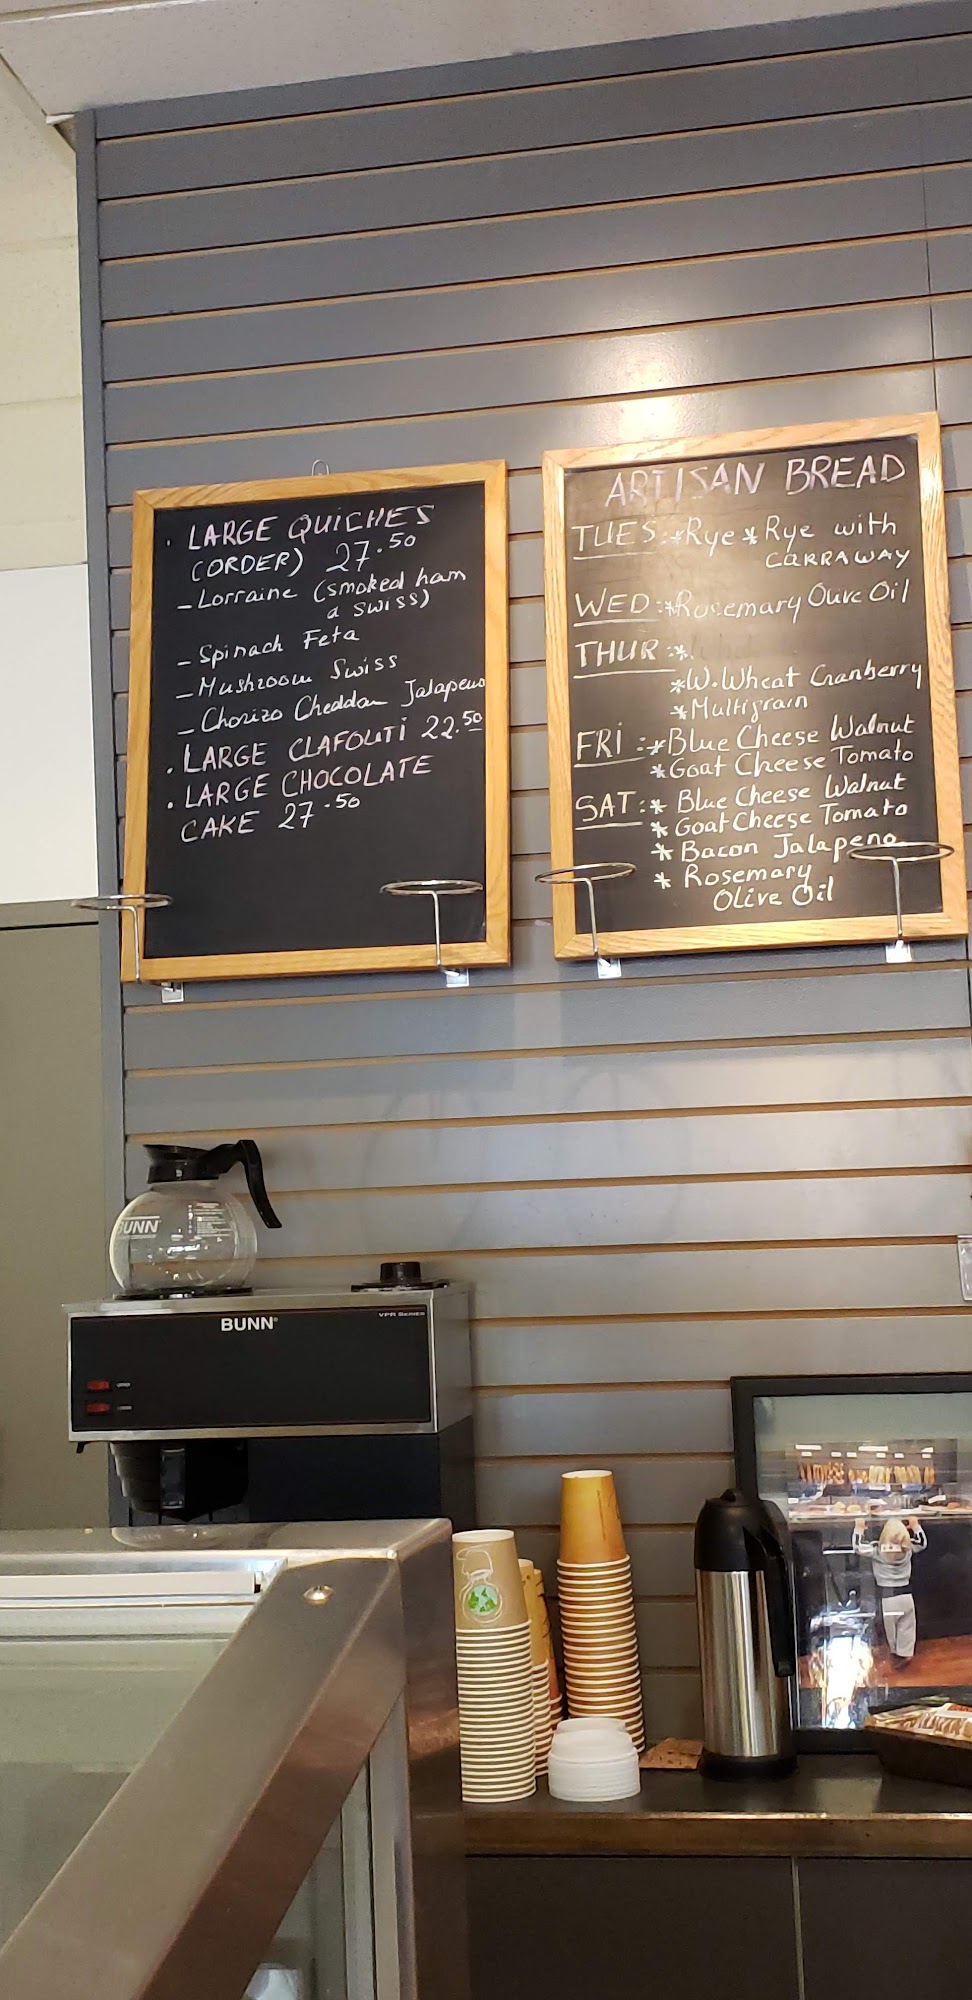 . LARGE QUICHES
(ORDER) 27.50
- Lorraine (smoked ham
a swiss)
- Spinach Feta
- Mushroom Swiss
- Chorizo Cheddar Jalapeno
. LARGE CLAFOUTI 22.50
. LARGE CHOCOLATE
CAKE 27.50
ARTISAN BREAD
TUES: *Rye *Rye with
CARRAWAY
WED: *Rosemary Olive Oil
THUR: *
*W.Wheat Cranberry
*Multigrain
FRI: *Blue Cheese Walnut
*Goat Cheese Tomato
SAT: * Blue Cheese Walnut
* Goat Cheese Tomato
* Bacon Jalapeno
* Rosemary
Olive Oil
BUNN
BUNN
VPR SERIES